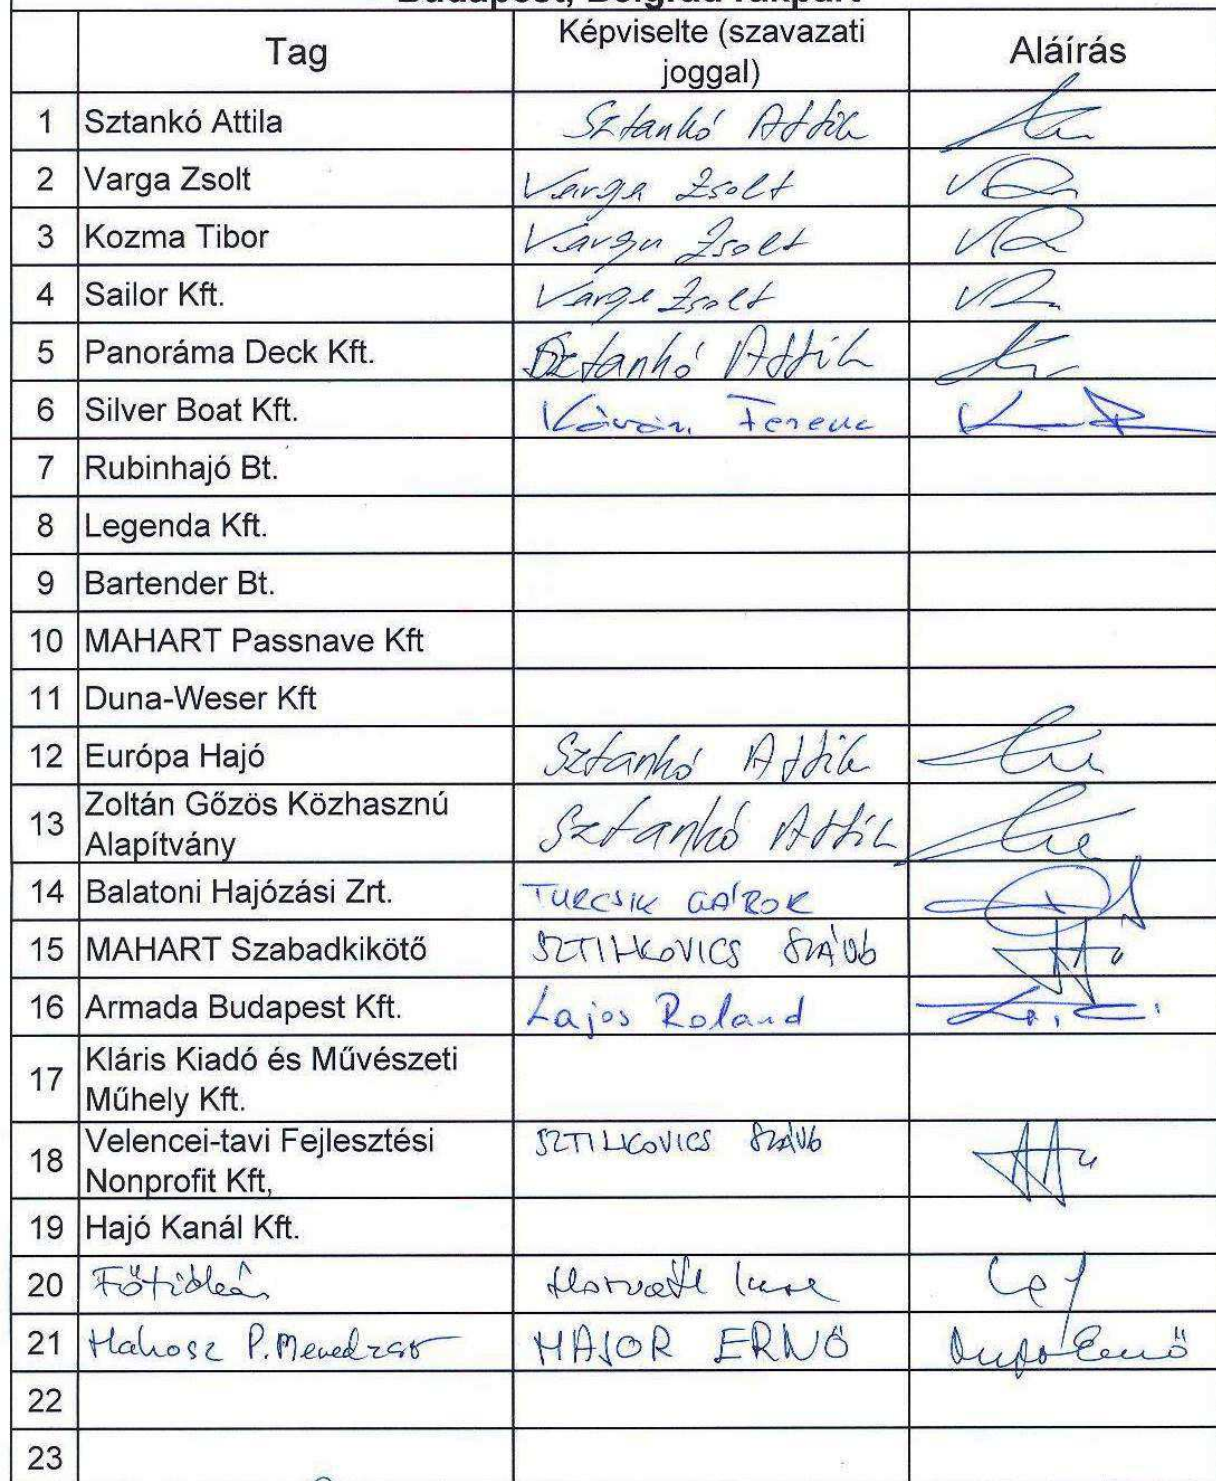 Budapest, Belgrád rakpart
Tag
Képviselte (szavazati
joggal)
Aláírás
1 Sztankó Attila Sztankó Attila
2 Varga Zsolt Varga Zsolt
3 Kozma Tibor Varga Zsolt
4 Sailor Kft. Varga Zsolt
5 Panoráma Deck Kft. Sztankó Attila
6 Silver Boat Kft. Ferenc
7 Rubinhajó Bt.
8 Legenda Kft.
9 Bartender Bt.
10 MAHART Passnave Kft
11 Duna-Weser Kft
12 Európa Hajó Sztankó Attila
13 Zoltán Gőzös Közhasznú
Alapítvány Sztankó Attila
14 Balatoni Hajózási Zrt. TURCSIK
15 MAHART Szabadkikötő SZTILKOVICS SZÁVÓ
16 Armada Budapest Kft. Lajos Roland
17 Kláris Kiadó és Művészeti
Műhely Kft.
18 Velencei-tavi Fejlesztési
Nonprofit Kft, SZTILKOVICS
19 Hajó Kanál Kft.
20 Horváth Imre
21 Mahosz MAJOR ERNŐ
22
23